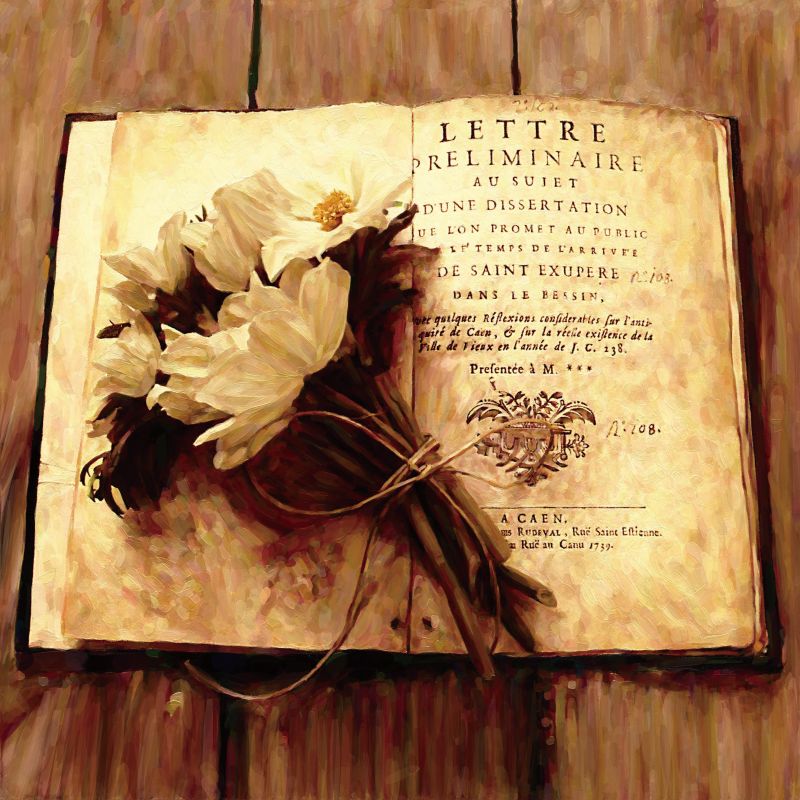 LETTRE
PRELIMINAIRE
AU SUJET
D'UNE DISSERTATION
UE L'ON PROMET AU PUBLIC
TEMPS DE L'ARRIVÉE
DE SAINT EXUPERE
Nº. 108.
DANS LE BESSIN,
quelques Réflexions considerables sur l'anti-
quité de Caen, & sur la réelle existence de la
Ville de Vieux en l'année de J. C. 238.
Presentée à M. ***
Nº. 208.
A CAEN,
RUDEVAL, Ruë Saint Estienne.
Ruë au Canu 1739.